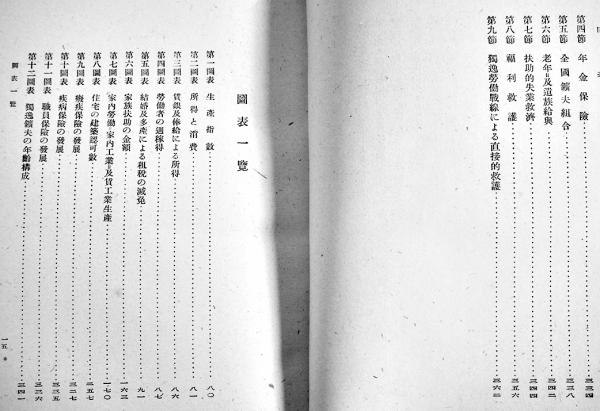 第四節 年金保險 三三四
第五節 全國鑛夫組合 三三八
第六節 老年及遺族給與 三四四
第七節 扶助的失業救濟 三五四
第八節 福利救護 三五六
第九節 獨逸勞働戰線による直接的救護 三六二
圖表一覽
第一圖表 生產指數 八〇
第二圖表 所得と消費 八一
第三圖表 賃銀及俸給による所得 八六
第四圖表 勞働者の週稼得 八七
第五圖表 結婚及多產による租稅の減免 九一
第六圖表 家族扶助の金額 一六三
第七圖表 家內勞働、家內工業及賃工業生產 一七〇
第八圖表 住宅の建築認可數 二五七
第九圖表 癈疾保險の發展 三二七
第十圖表 疾病保險の發展 三三五
第十一圖表 職員保險の發展 三三六
第十二圖表 獨逸鑛夫の年齡構成 三四一
圖表一覽
一五